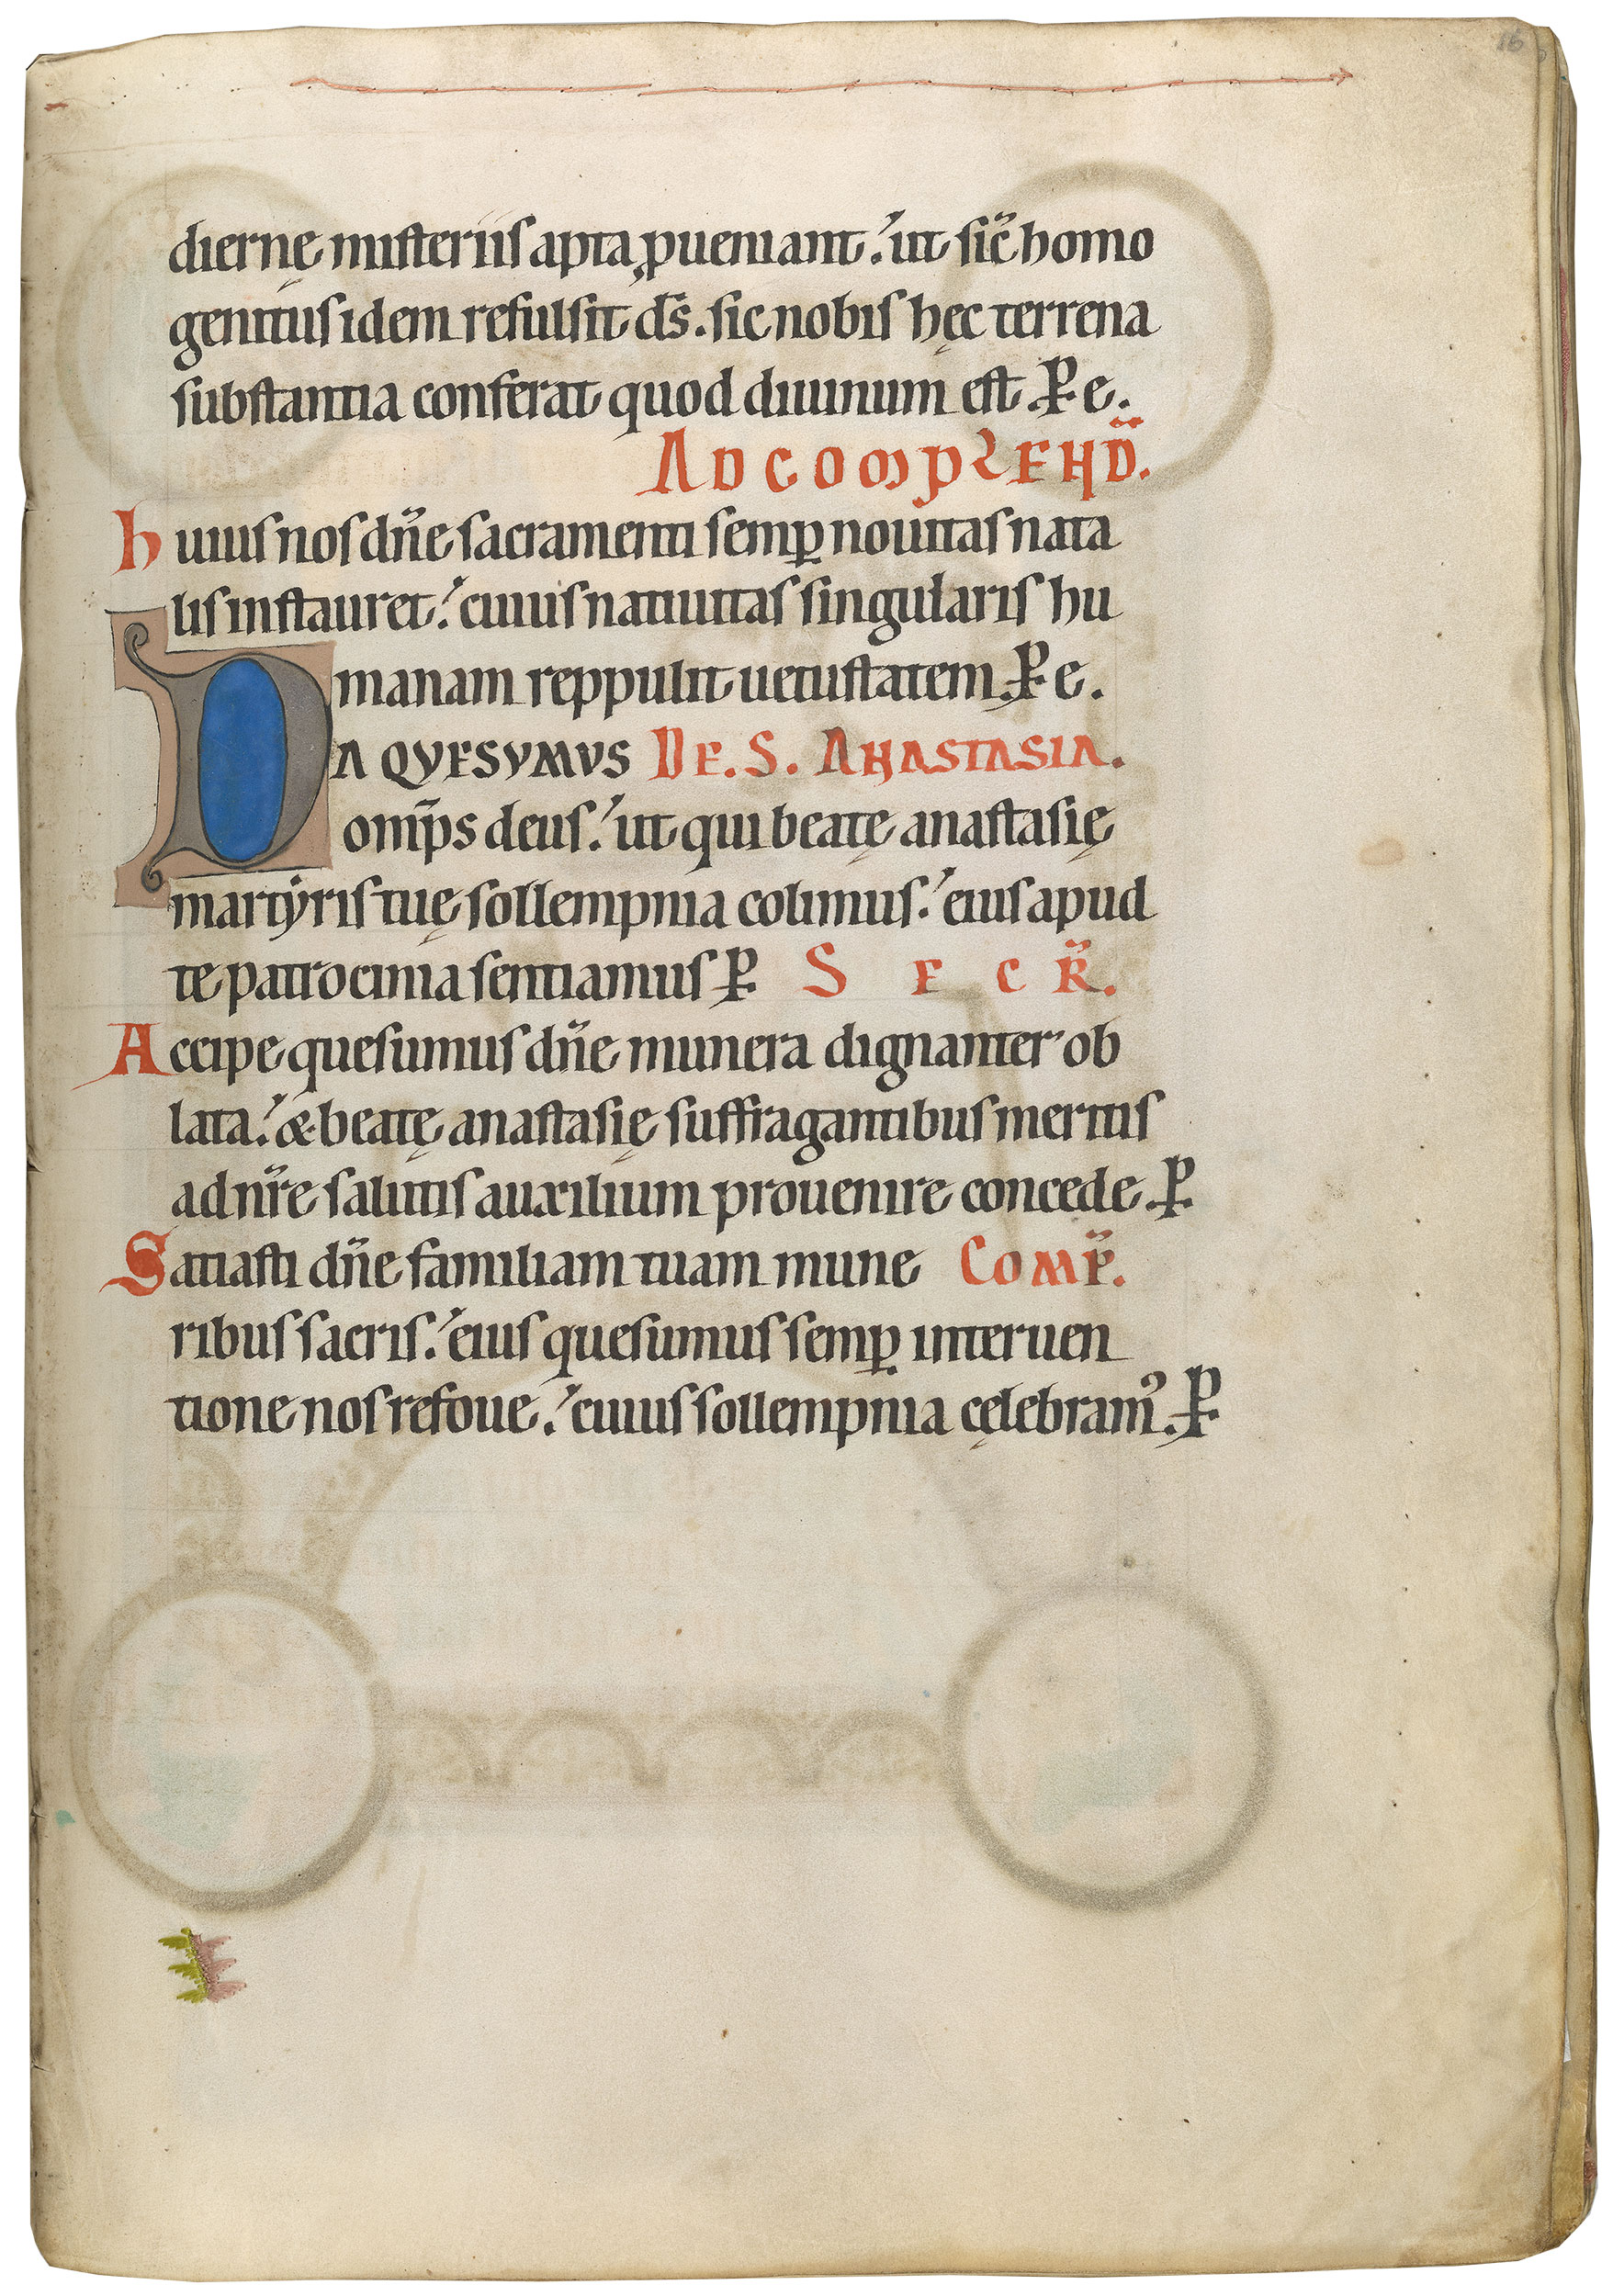 16
diernę misteriis apta ꝓueniant. ut sic̄ homo
genitus idem refulsit d̄s. sic nobis hęc terrena
substantia conferat quod diuinum est. P̱ e.
AD COMPLEND̄.
huius nos dn̄e sacramenti semꝑ nouitas nata
lis instauret. cuius natiuitas singularis hu
manam reppulit uetustatem. P̱ e.
DA QVESVMVS DE. S. ANASTASIA.
omp̄s deus. ut qui beatę anastasię
martyris tuę sollempnia colimus. eius apud
te patrocinia sentiamus P̱ SECR̄.
Accipe quesumus dn̄e munera dignanter ob
lata. & beatę anastasię suffragantibus meritis
ad nr̄e salutis auxilium prouenire concede. P̱
Satiasti dn̄e familiam tuam mune COMP̄.
ribus sacris. eius quesumus semꝑ interuen
tione nos refoue. cuius sollempnia cęlebramꝰ. P̱